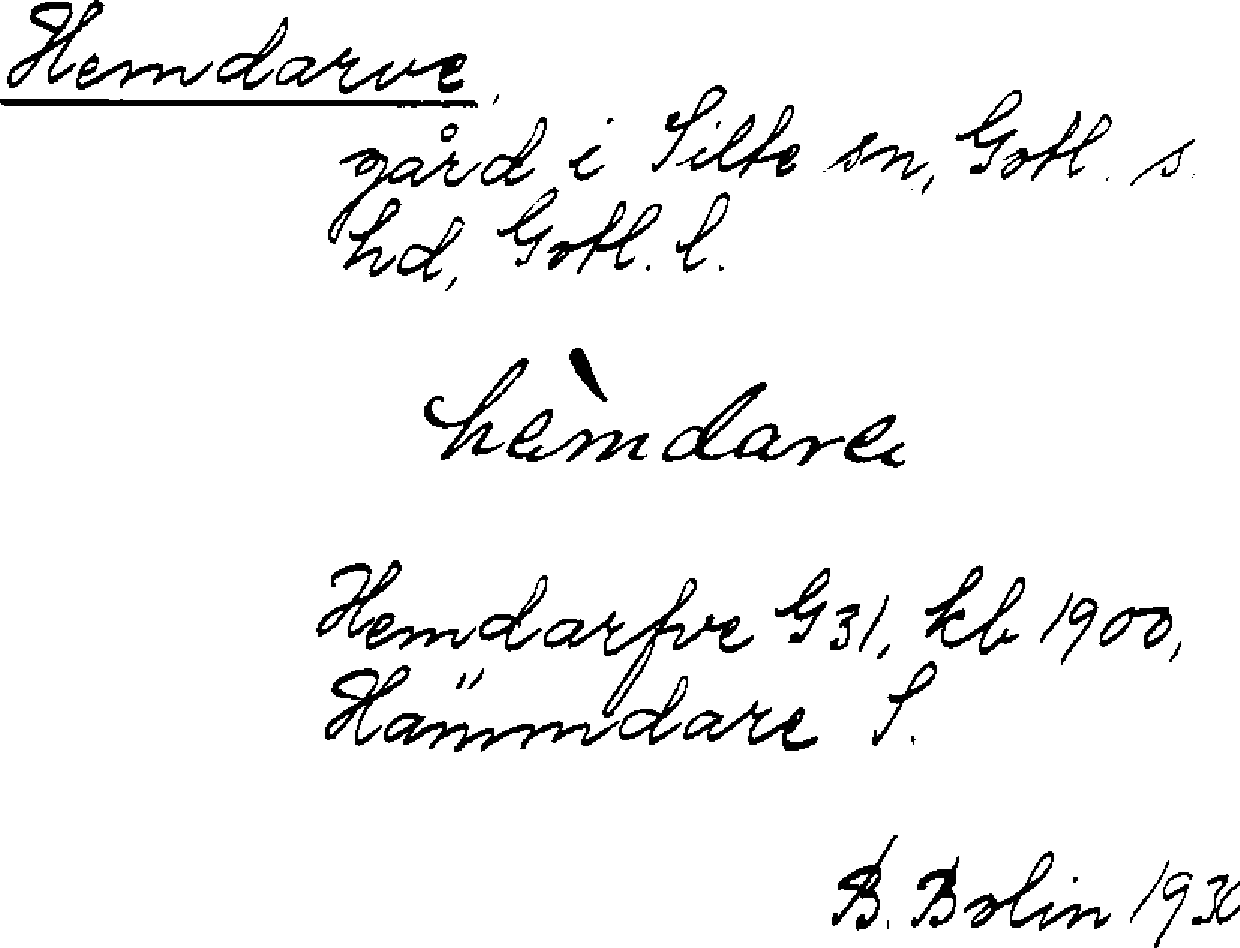 Hemdarve,
gård i Silte sn, Gotl. s.
hd, Gotl. l.
hèmdare
Hemdarfve G31, kb 1900,
Hämmdare S.
B. Bolin 1930